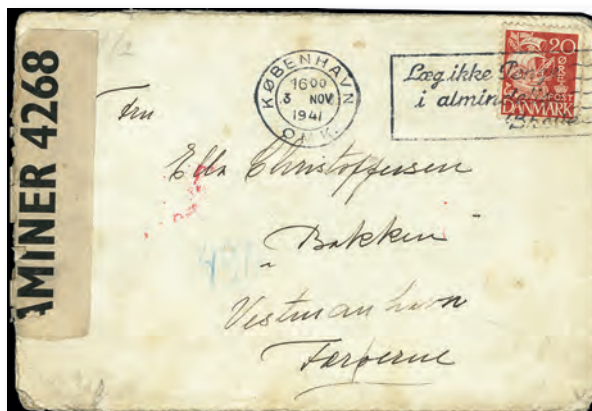 AMINER 4268
KØBENHAVN
1600
3 NOV
1941
OMK.
Læg ikke Penge
i almindelige
Breve
20
ØRE
POST
DANMARK
Fru
Ella Christoffersen
"Bakken"
Vestmanhavn
Færøerne